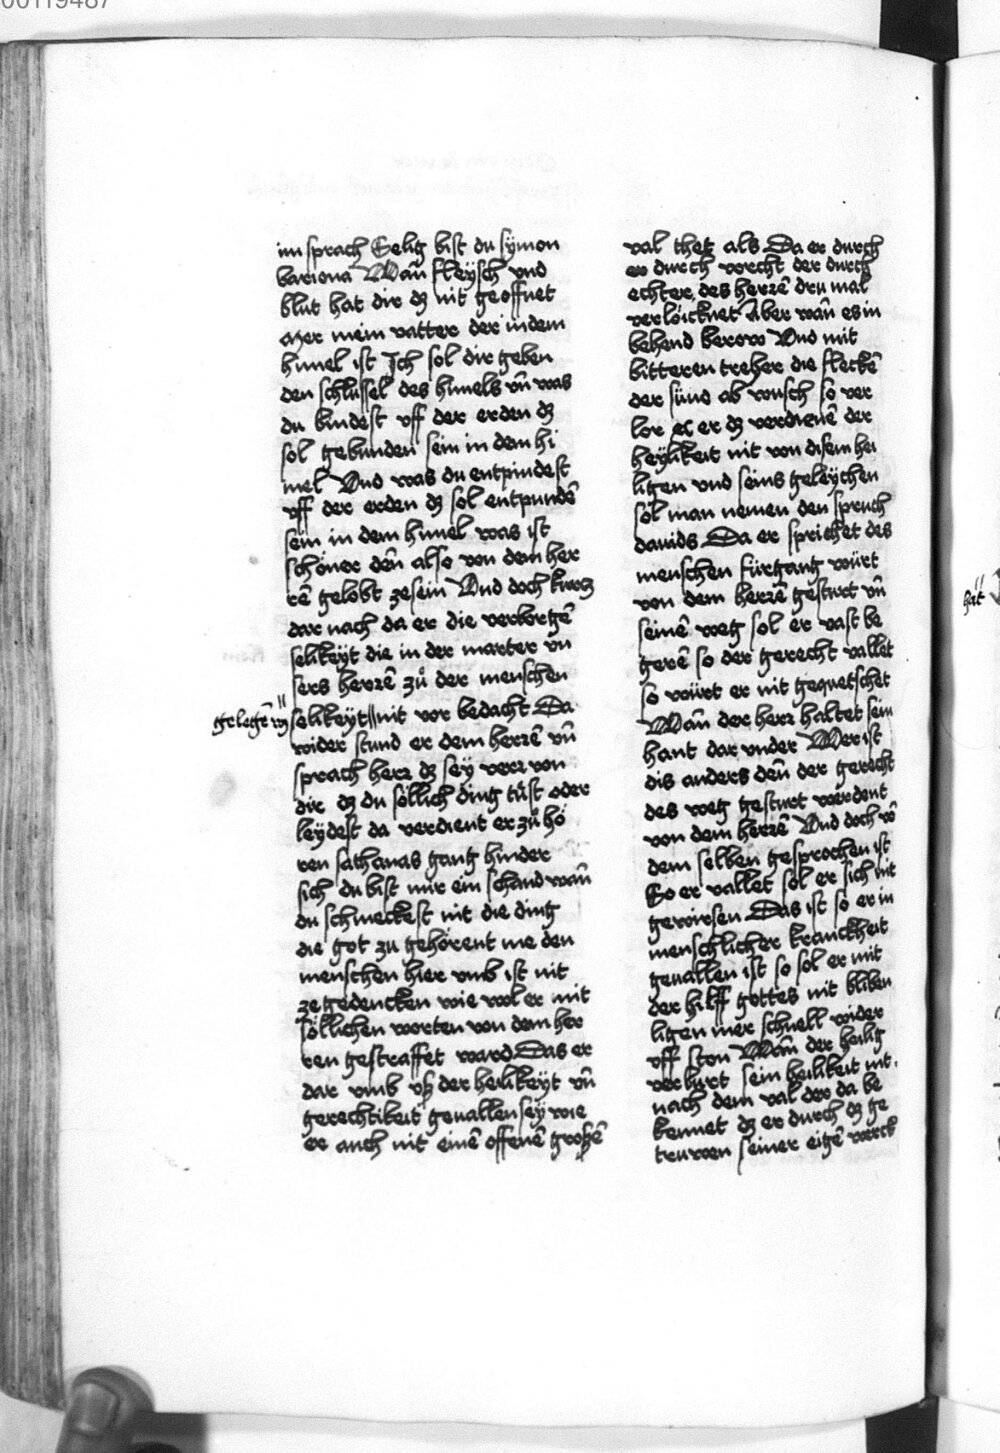 00119487
im sprach Selig bist du sÿmon
bariona Wañ fleÿsch vnd
blut hat dir dʒ nit geoffnet
mer mein vatter der in dem
himel ist Ich sol dir geben
den schlussel des himels vñ was
du bindest vff der erden dʒ
sol gebunden sein in dem hi
mel Vnd was du entpindest
vff der erden dʒ sol entpundē
sein in dem himel was ist
schöner deñ also von dem her
rē gelobt ze sein Vnd doch kurcz
dar nach da er die verborgē
selikeÿt die in der marter vn
sers herrē zů der menschen
gelegē wʒ
selikeÿt nit vor bedacht Da
wider stund er dem herrē vñ
sprach herr dʒ seÿ verr von
dir dʒ du söllich ding tůst oder
leÿdest da verdient er zů hö
ren sathanas gang hinder
sich du bist mir ein schand wañ
du schmeckest nit die ding
die got zu gehörent me den
menschen hier vmb ist nit
ze gedencken wie wol er mit
söllichen worten von dem her
ren gestraffet ward Das er
dar vmb vß der heilikeÿt vñ
gerechtikeit geuallen seÿ wie
er auch nit einē offenē großē
val thet als Da er durch
er durch vorcht der durch
echter des herrē dru mal
verlöicknet Aber wañ es in
behend berow Vnd mit
bitteren treher die fleckē
der sünd ab wusch so ver
lor er dʒ verdienē der
heÿlikeit nit von disem hei
ligen vnd seins geleÿchen
sol man nemen den spruch
dauids Da er sprichet des
menschen fürgang würt
von dem herrē gesturt vñ
seinē weg sol er vast be
gerē so der gerecht vallet
so würt er nit gequetschet
Wañ der herr haltet sein
hant dar vnder Wer ist
dis anders deñ der gerecht
des weg gesturt werdent
von dem herrē Vnd doch vō
dem selben gesprochen ist
So er vallet sol er sich nit
gewirsen Das ist so er in
menschlicher kranckheit
geuallen ist so sol er mit
der hilff gottes nit bliben
ligen mer schnell wider
vff ston Wañ der heilig
verlurt sein heilikeit nit
nach dem val der da be
kennet dʒ er durch dʒ ge
truwen seiner eigē werck
hat